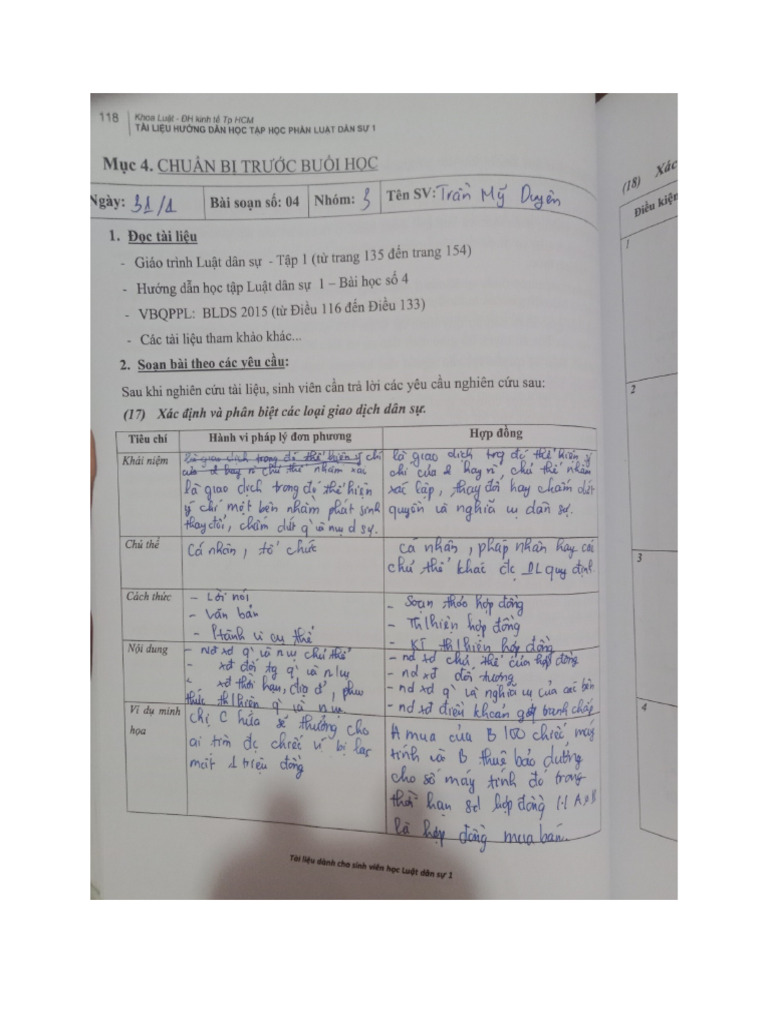 118 Khoa Luật - ĐH kinh tế Tp HCM
TÀI LIỆU HƯỚNG DẪN HỌC TẬP HỌC PHẦN LUẬT DÂN SỰ 1
Mục 4. CHUẨN BỊ TRƯỚC BUỔI HỌC
Ngày: 31/1 Bài soạn số: 04 Nhóm: 3 Tên SV: Trần Mỹ Duyên
1. Đọc tài liệu
- Giáo trình Luật dân sự - Tập 1 (từ trang 135 đến trang 154)
- Hướng dẫn học tập Luật dân sự 1 – Bài học số 4
- VBQPPL: BLDS 2015 (từ Điều 116 đến Điều 133)
- Các tài liệu tham khảo khác...
2. Soạn bài theo các yêu cầu:
Sau khi nghiên cứu tài liệu, sinh viên cần trả lời các yêu cầu nghiên cứu sau:
(17) Xác định và phân biệt các loại giao dịch dân sự.
Tiêu chí Hành vi pháp lý đơn phương Hợp đồng
Khái niệm
là giao dịch trong đó thể hiện ý chí
của 2 hay n chủ thể nhằm xác
là giao dịch trong đó thể hiện
ý chí một bên nhằm phát sinh
thay đổi, chấm dứt q` và nvụ d sự.
là giao dịch trg đó thể hiện ý
chí của 2 hay n`, chủ thể nhằm
xác lập, thay đổi hay chấm dứt
quyền và nghĩa vụ dân sự.
Chủ thể
Cá nhân, tổ chức
cá nhân, pháp nhân hay các
chủ thể khác đc PL quy định
Cách thức
- Lời nói
- Văn bản
- Hành vi cụ thể
- Soạn thảo hợp đồng
- T hiện hợp đồng
- KT, hiện hợp đồng
Nội dung
- Nd xđ q` và nvụ chủ thể
- xđ đối tg q` và nvụ
- xđ thời hạn, địa đ', phư
thức hiện q` và nvụ.
- nd xđ chủ thể của hợp đồng
- nd xđ đối tượng
- nd xđ q` và nghĩa vụ của các bên
- nd xđ điều khoản gqy tranh chấp
Ví dụ minh
họa
chị C hứa sẽ thưởng cho
ai tìm đc chiếc ví bị lạc
mất 1 triệu đồng
A mua của B 100 chiếc máy
tính và B thuê bảo dưỡng
cho số máy tính đó trong
thời hạn hợp đồng
là hợp đồng mua bán.
Tài liệu dành cho sinh viên học Luật dân sự 1
(18) Xác
Điều kiện
1
2
3
4